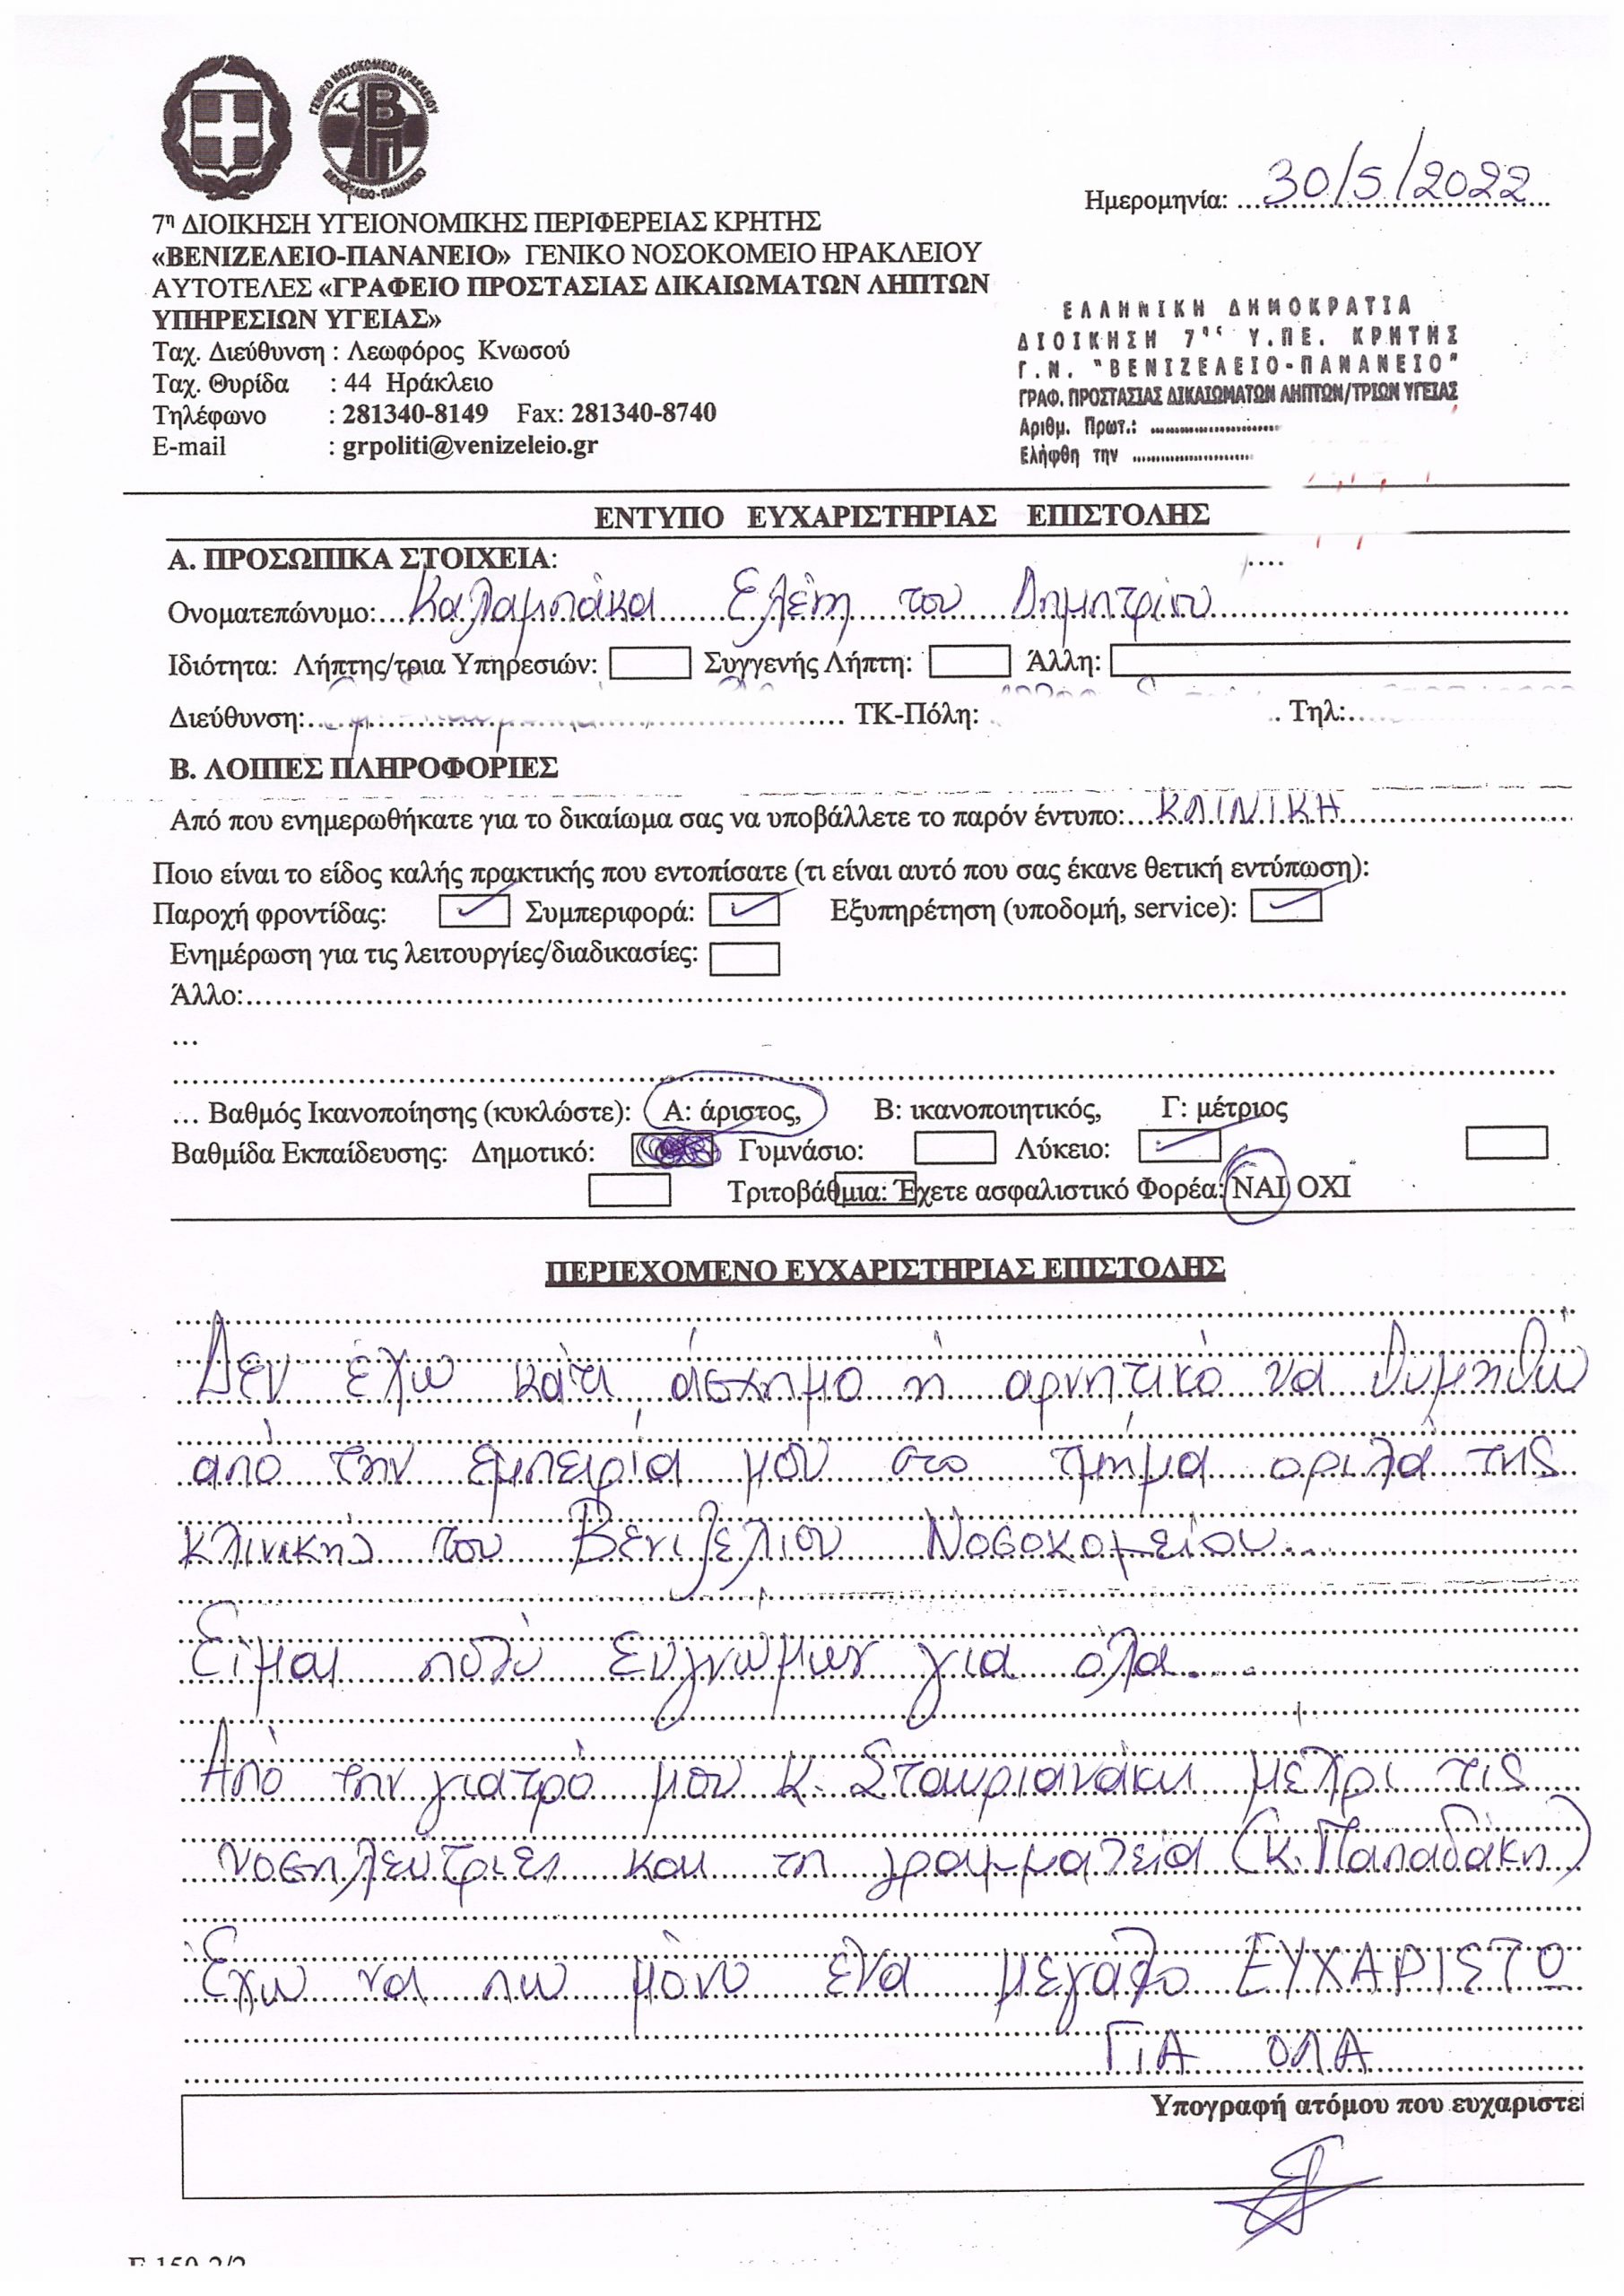 ΓΕΝΙΚΟ ΝΟΣΟΚΟΜΕΙΟ ΗΡΑΚΛΕΙΟΥ
ΒΠ
ΒΕΝΙΖΕΛΕΙΟ-ΠΑΝΑΝΕΙΟ
Ημερομηνία: 30/5/2022
7η ΔΙΟΙΚΗΣΗ ΥΓΕΙΟΝΟΜΙΚΗΣ ΠΕΡΙΦΕΡΕΙΑΣ ΚΡΗΤΗΣ
«ΒΕΝΙΖΕΛΕΙΟ-ΠΑΝΑΝΕΙΟ» ΓΕΝΙΚΟ ΝΟΣΟΚΟΜΕΙΟ ΗΡΑΚΛΕΙΟΥ
ΑΥΤΟΤΕΛΕΣ «ΓΡΑΦΕΙΟ ΠΡΟΣΤΑΣΙΑΣ ΔΙΚΑΙΩΜΑΤΩΝ ΛΗΠΤΩΝ
ΥΠΗΡΕΣΙΩΝ ΥΓΕΙΑΣ»
Ταχ. Διεύθυνση : Λεωφόρος Κνωσού
Ταχ. Θυρίδα : 44 Ηράκλειο
Τηλέφωνο : 281340-8149 Fax: 281340-8740
E-mail : grpoliti@venizeleio.gr
ΕΛΛΗΝΙΚΗ ΔΗΜΟΚΡΑΤΙΑ
ΔΙΟΙΚΗΣΗ 7ης Υ.ΠΕ. ΚΡΗΤΗΣ
Γ.Ν. "ΒΕΝΙΖΕΛΕΙΟ-ΠΑΝΑΝΕΙΟ"
ΓΡΑΦ. ΠΡΟΣΤΑΣΙΑΣ ΔΙΚΑΙΩΜΑΤΩΝ ΛΗΠΤΩΝ/ΤΡΙΩΝ ΥΓΕΙΑΣ
Αριθμ. Πρωτ.: ....................
Ελήφθη την ....................
ΕΝΤΥΠΟ ΕΥΧΑΡΙΣΤΗΡΙΑΣ ΕΠΙΣΤΟΛΗΣ
Α. ΠΡΟΣΩΠΙΚΑ ΣΤΟΙΧΕΙΑ:
Ονοματεπώνυμο: Καλαμπάκα Ελένη του Δημητρίου
Ιδιότητα: Λήπτης/τρια Υπηρεσιών: Συγγενής Λήπτη: Άλλη:
Διεύθυνση: ΤΚ-Πόλη: Τηλ:
Β. ΛΟΙΠΕΣ ΠΛΗΡΟΦΟΡΙΕΣ
Από που ενημερωθήκατε για το δικαίωμα σας να υποβάλλετε το παρόν έντυπο: ΚΛΙΝΙΚΗ
Ποιο είναι το είδος καλής πρακτικής που εντοπίσατε (τι είναι αυτό που σας έκανε θετική εντύπωση):
Παροχή φροντίδας: ✓ Συμπεριφορά: ✓ Εξυπηρέτηση (υποδομή, service): ✓
Ενημέρωση για τις λειτουργίες/διαδικασίες:
Άλλο:
...
... Βαθμός Ικανοποίησης (κυκλώστε): Α: άριστος, Β: ικανοποιητικός, Γ: μέτριος
Βαθμίδα Εκπαίδευσης: Δημοτικό: Γυμνάσιο: Λύκειο: ✓
Τριτοβάθμια: Έχετε ασφαλιστικό Φορέα: ΝΑΙ ΟΧΙ
ΠΕΡΙΕΧΟΜΕΝΟ ΕΥΧΑΡΙΣΤΗΡΙΑΣ ΕΠΙΣΤΟΛΗΣ
Δεν έχω κάτι άσχημο ή αρνητικό να θυμηθώ
από την εμπειρία μου στο τμήμα οριλά της
κλινικής του Βενιζελιου Νοσοκομείου...
Είμαι πολύ ευγνώμων για όλα....
Από την γιατρό μου Κ. Σταυριανάκη μέχρι τις
νοσηλεύτριες και τη γραμματεία (Κ. Παπαδάκη)
Έχω να πω μόνο ένα μεγάλο ΕΥΧΑΡΙΣΤΩ
ΓΙΑ ΟΛΑ
Υπογραφή ατόμου που ευχαριστεί